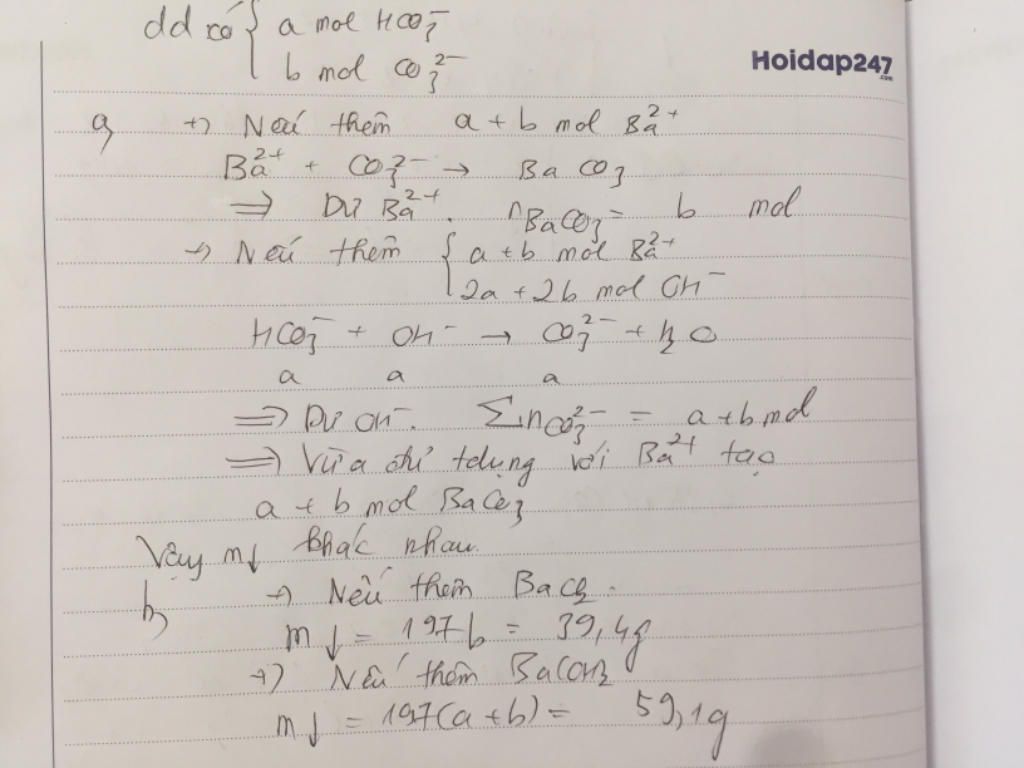 dd có { a mol HCO₃⁻
b mol CO₃²⁻
Hoidap247
.com
a, +) Nếu thêm a + b mol Ba²⁺
Ba²⁺ + CO₃²⁻ → BaCO₃
⇒ Dư Ba²⁺. nBaCO₃ = b mol
+) Nếu thêm { a + b mol Ba²⁺
2a + 2b mol OH⁻
HCO₃⁻ + OH⁻ → CO₃²⁻ + H₂O
a a a
⇒ Dư OH⁻. ∑nCO₃²⁻ = a + b mol
⇒ Vừa đủ tdụng với Ba²⁺ tạo
a + b mol BaCO₃
Vậy m↓ khác nhau.
b, +) Nếu thêm BaCl₂.
m↓ = 197b = 39,4g
+) Nếu thêm BaOH₂
m↓ = 197(a + b) = 59,1g